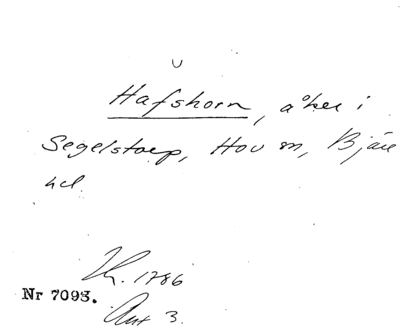 Hafshorn, åker i
Segelstorp, Hov sn, Bjäre
hd.
1786
Nr 7093.
Akt 3.